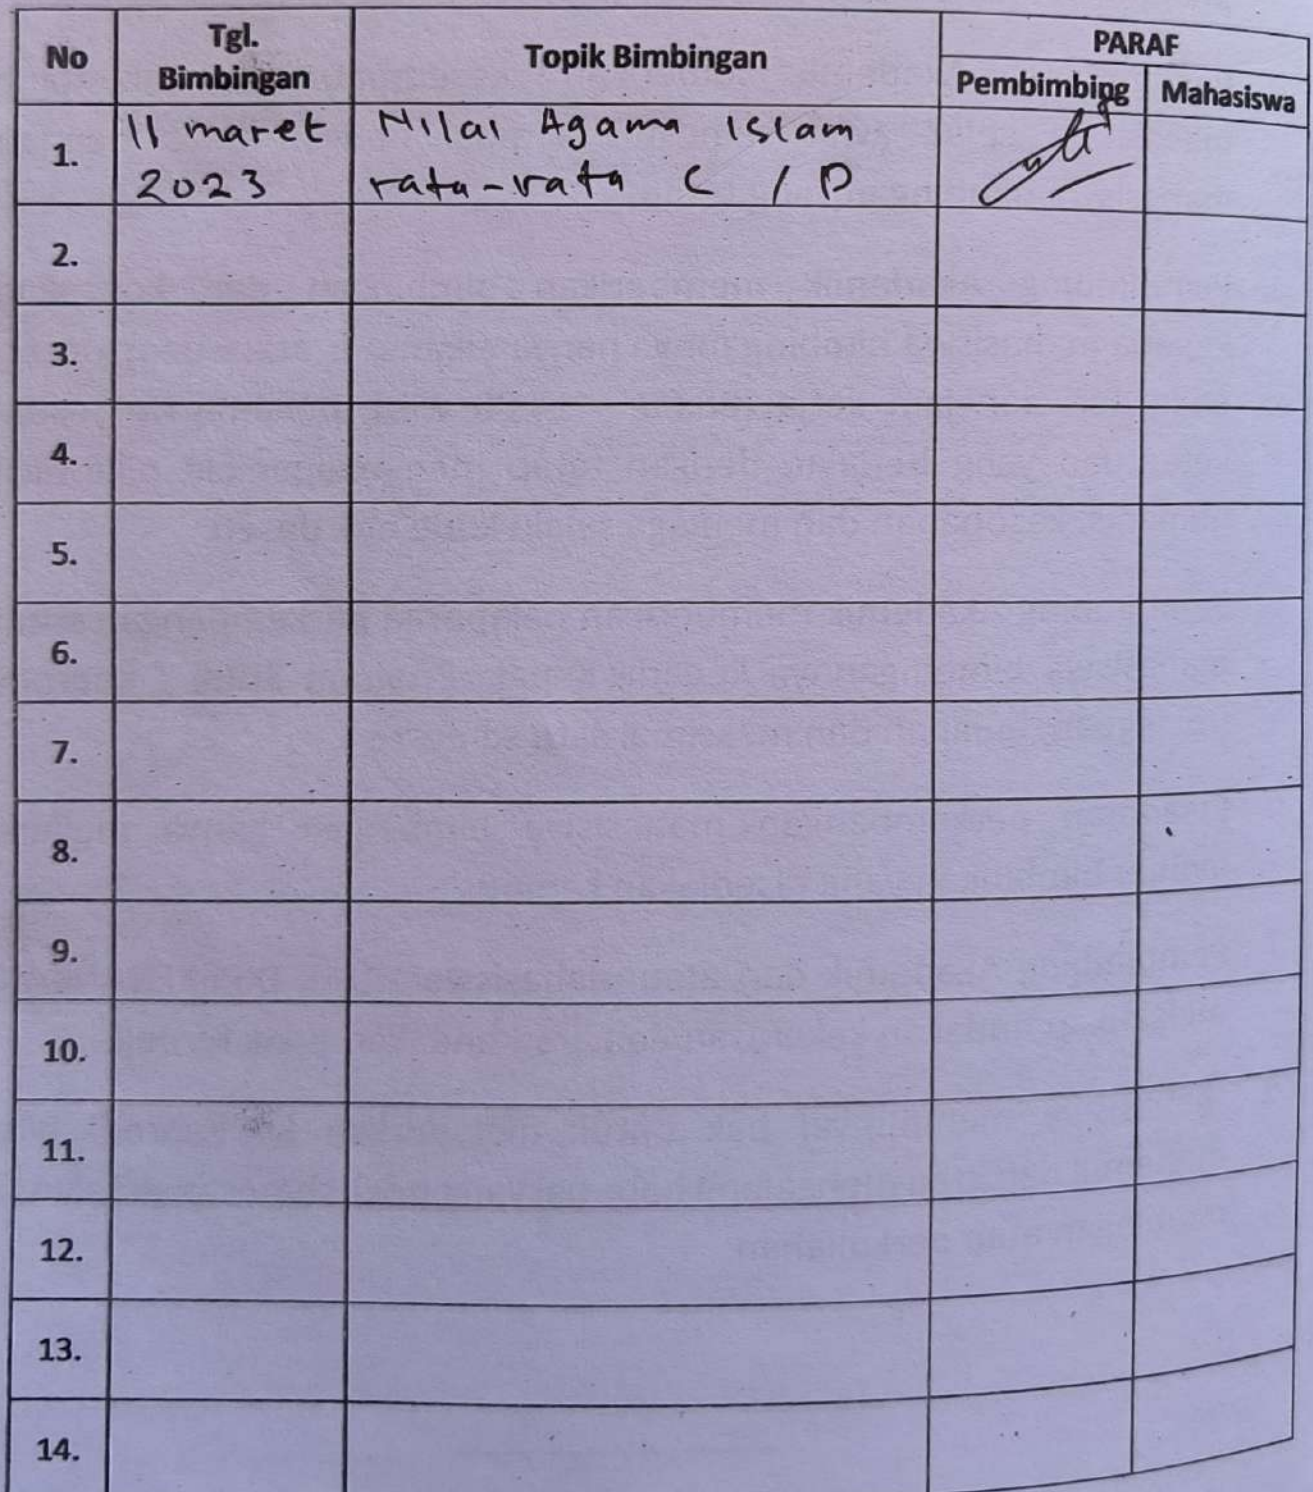 No
Tgl.
Bimbingan
Topik Bimbingan
PARAF
Pembimbing
Mahasiswa
1.
11 maret
2023
Nilai Agama Islam
rata-rata C / D
2.
3.
4.
5.
6.
7.
8.
9.
10.
11.
12.
13.
14.